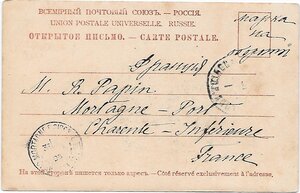 ВСЕМІРНЫЙ ПОЧТОВЫЙ СОЮЗЪ. — РОССІЯ.
UNION POSTALE UNIVERSELLE. RUSSIE.
ОТКРЫТОЕ ПИСЬМО. — CARTE POSTALE.
Марка
на
Франція
M. R. Papin
Mortagne - Port
Charente - Inférieure
France
На этой сторонѣ пишется только адресъ. — Côté réservé exclusivement à l'adresse.